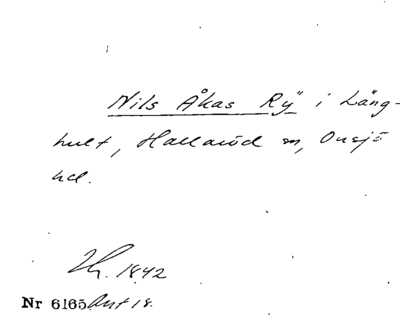 Nils Åkas Rÿ i Lång-
hult, Hallaröd sn, Onsjö
hd.
1842
Nr 6165